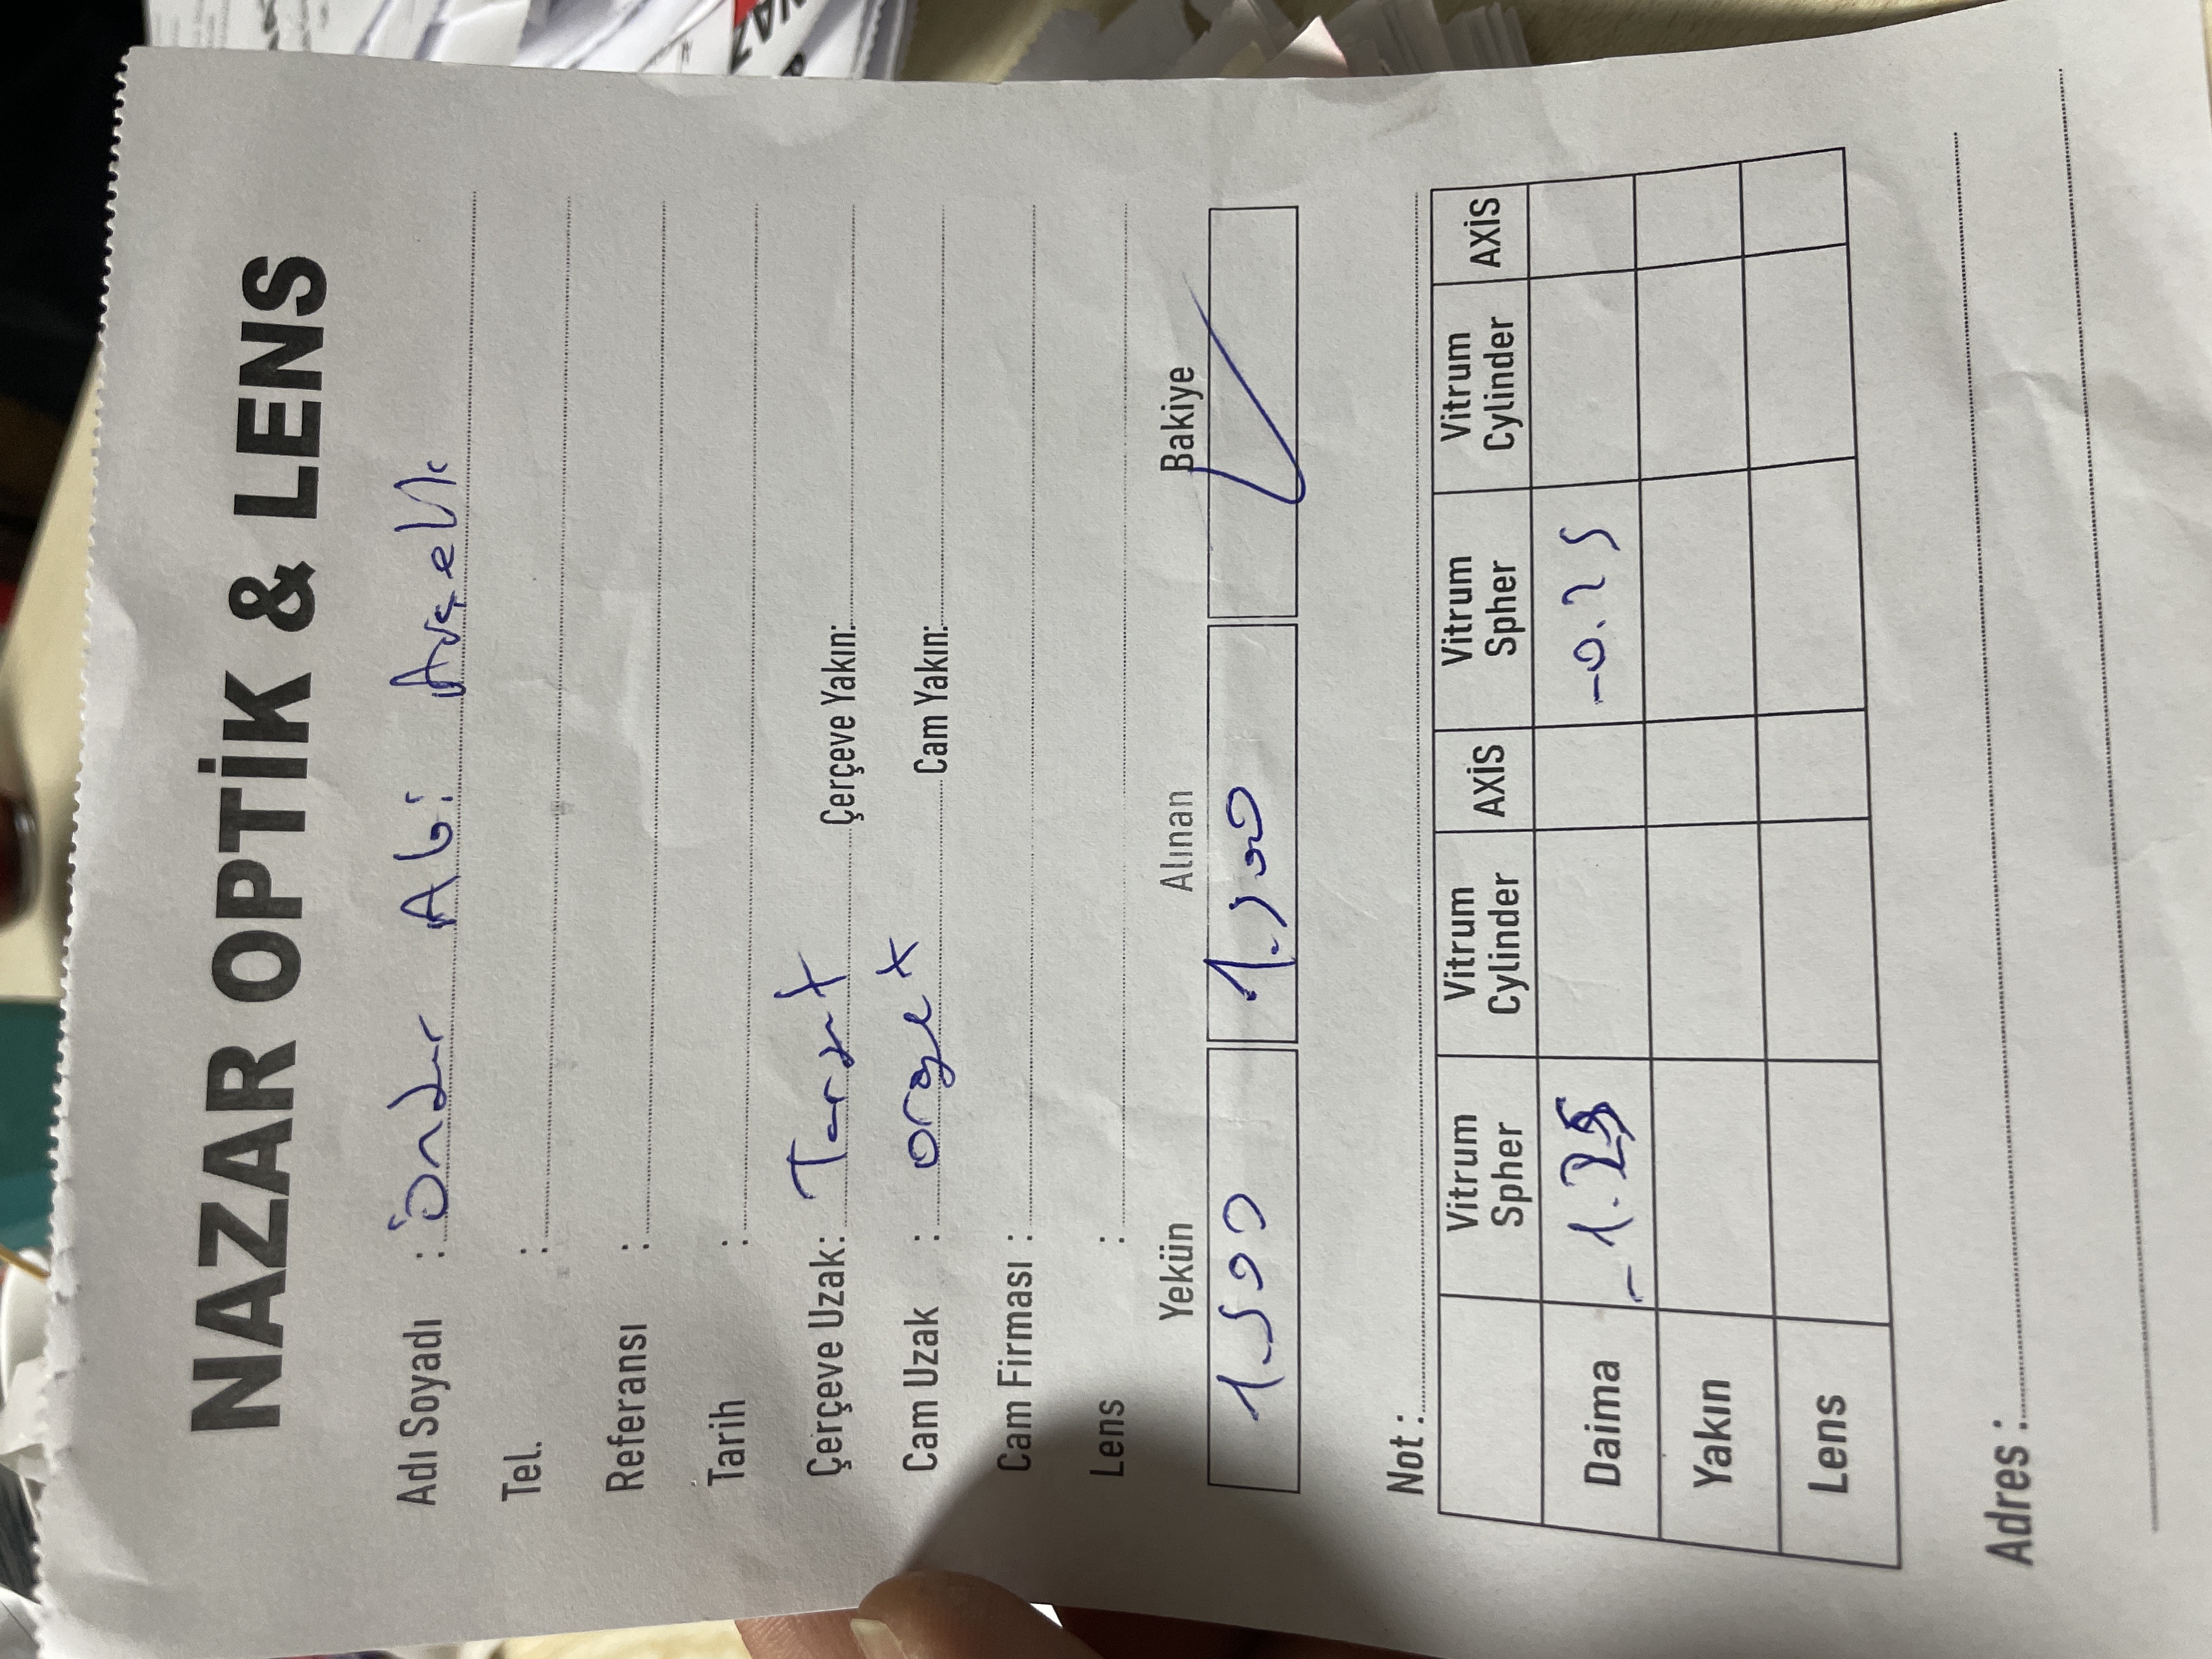 NAZAR OPTİK & LENS
Adı Soyadı : Önder Abi Arçelik
Tel. :
Referansı :
Tarih :
Çerçeve Uzak: Target Çerçeve Yakın:
Cam Uzak : Cam Yakın:
Cam Firması :
Lens :
Yekün Alınan Bakiye
1.500 1.500
Not :
Vitrum Spher Vitrum Cylinder AXİS Vitrum Spher Vitrum Cylinder AXİS
Daima -1.25 -0.25
Yakın
Lens
Adres :